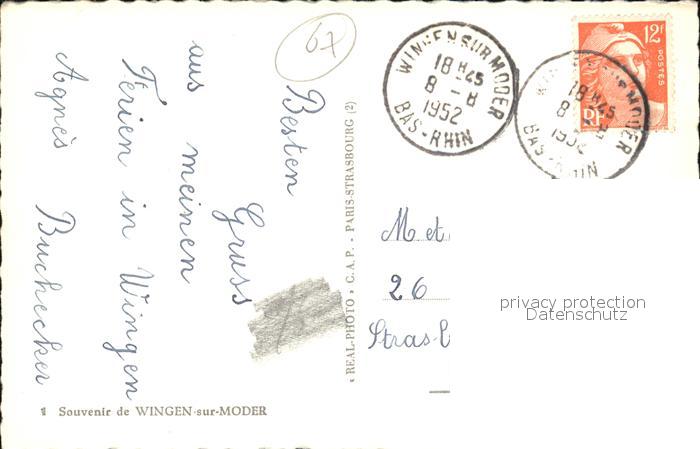 67
Besten
Gruss
aus meinen
Ferien in Wingen
Agnès Buchecker
1 Souvenir de WINGEN-sur-MODER
« REAL-PHOTO » C.A.P. - PARIS-STRASBOURG (2)
WINGEN SUR MODER
18 H 45
8 - 8
1952
BAS-RHIN
12F
POSTES
RF
SUR MODER
18 H 45
8 - 8
1952
BAS-RHIN
M et
26
Stras
privacy protection
Datenschutz